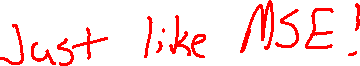 Just like MSE!